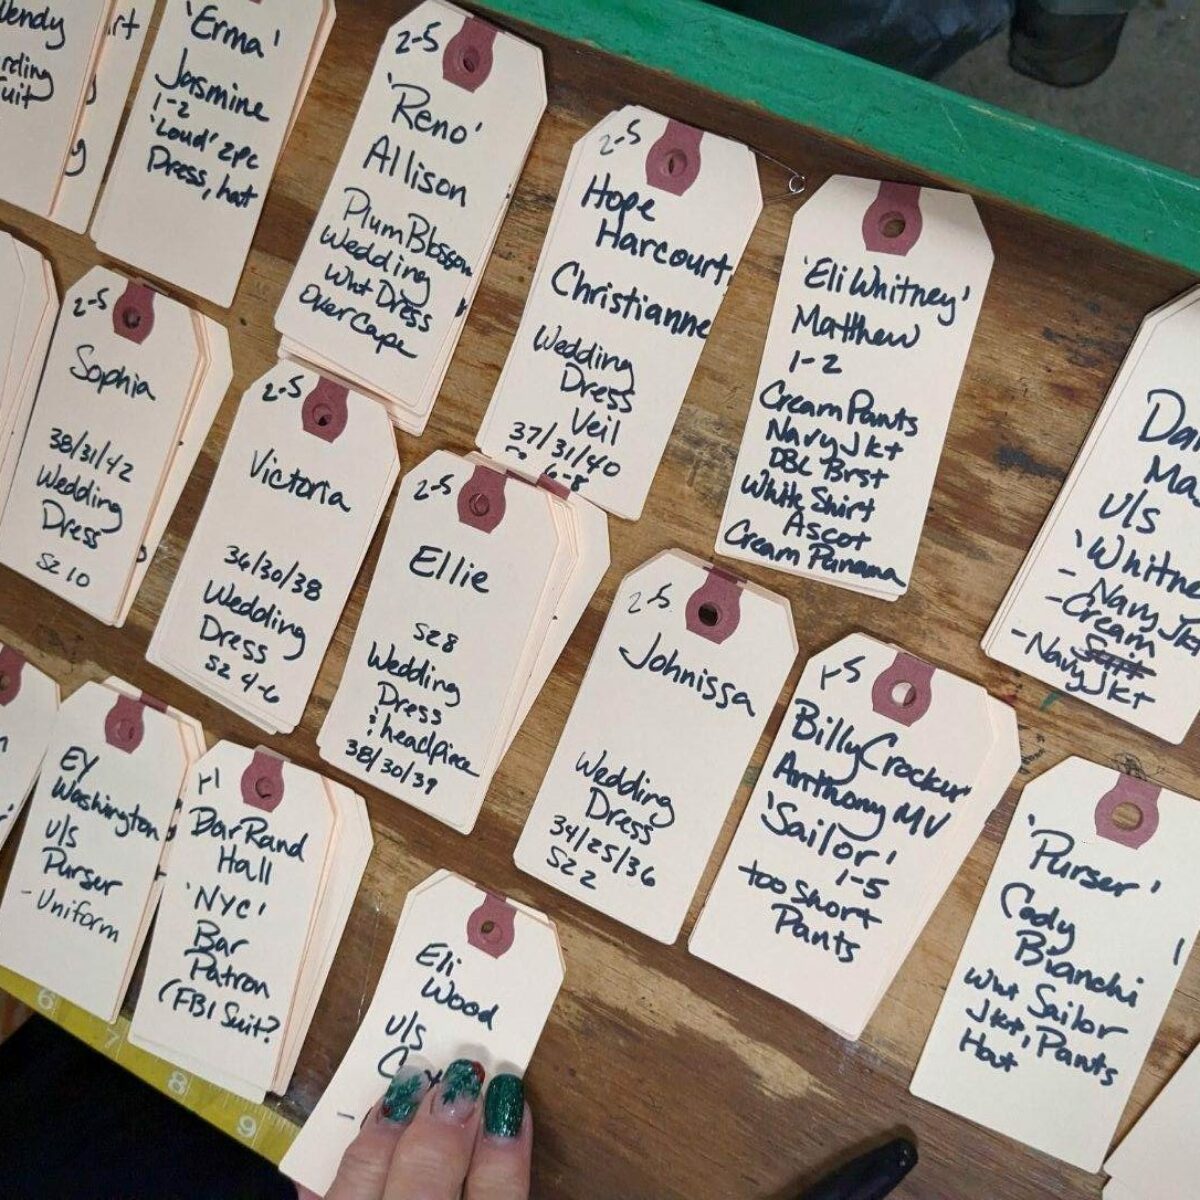 Wendy
uit
rt
'Erma'
Jasmine
1-2
'Loud' 2pc
Dress, hat
2-5
'Reno'
Allison
Plum Blossom
Wedding
Wht Dress
Over Cape
2-5
Hope
Harcourt
Christianne
Wedding
Dress
Veil
37/31/40
6-8
'Eli Whitney'
Matthew
1-2
Cream Pants
Navy Jkt
DBL Brst
White Shirt
Ascot
Cream Panama
Da
Ma
u/s
'Whitne
- Navy Jkt
- Cream
- Navy Jkt
2-5
Sophia
38/31/42
Wedding
Dress
SZ 10
2-5
Victoria
36/30/38
Wedding
Dress
SZ 4-6
2-5
Ellie
SZ 8
Wedding
Dress
& headpiece
38/30/39
2-5
Johnissa
Wedding
Dress
34/25/36
SZ 2
1-5
Billy Crocker
Anthony MV
'Sailor'
1-5
too short
Pants
'Purser'
Cody
Bianchi
Wht Sailor
Jkt, Pants
Hat
EY
Washington
u/s
Purser
- Uniform
1-1
Dar Rand
Hall
'NYC'
Bar
Patron
(FBI Suit?
Eli
Wood
u/s
6
7
8
9